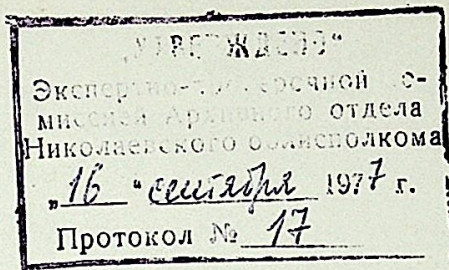 „УТВЕРЖДЕНО“
Экспертно-проверочной ко-
миссией Архивного отдела
Николаевского облисполкома
„16“ сентября 1977 г.
Протокол № 17